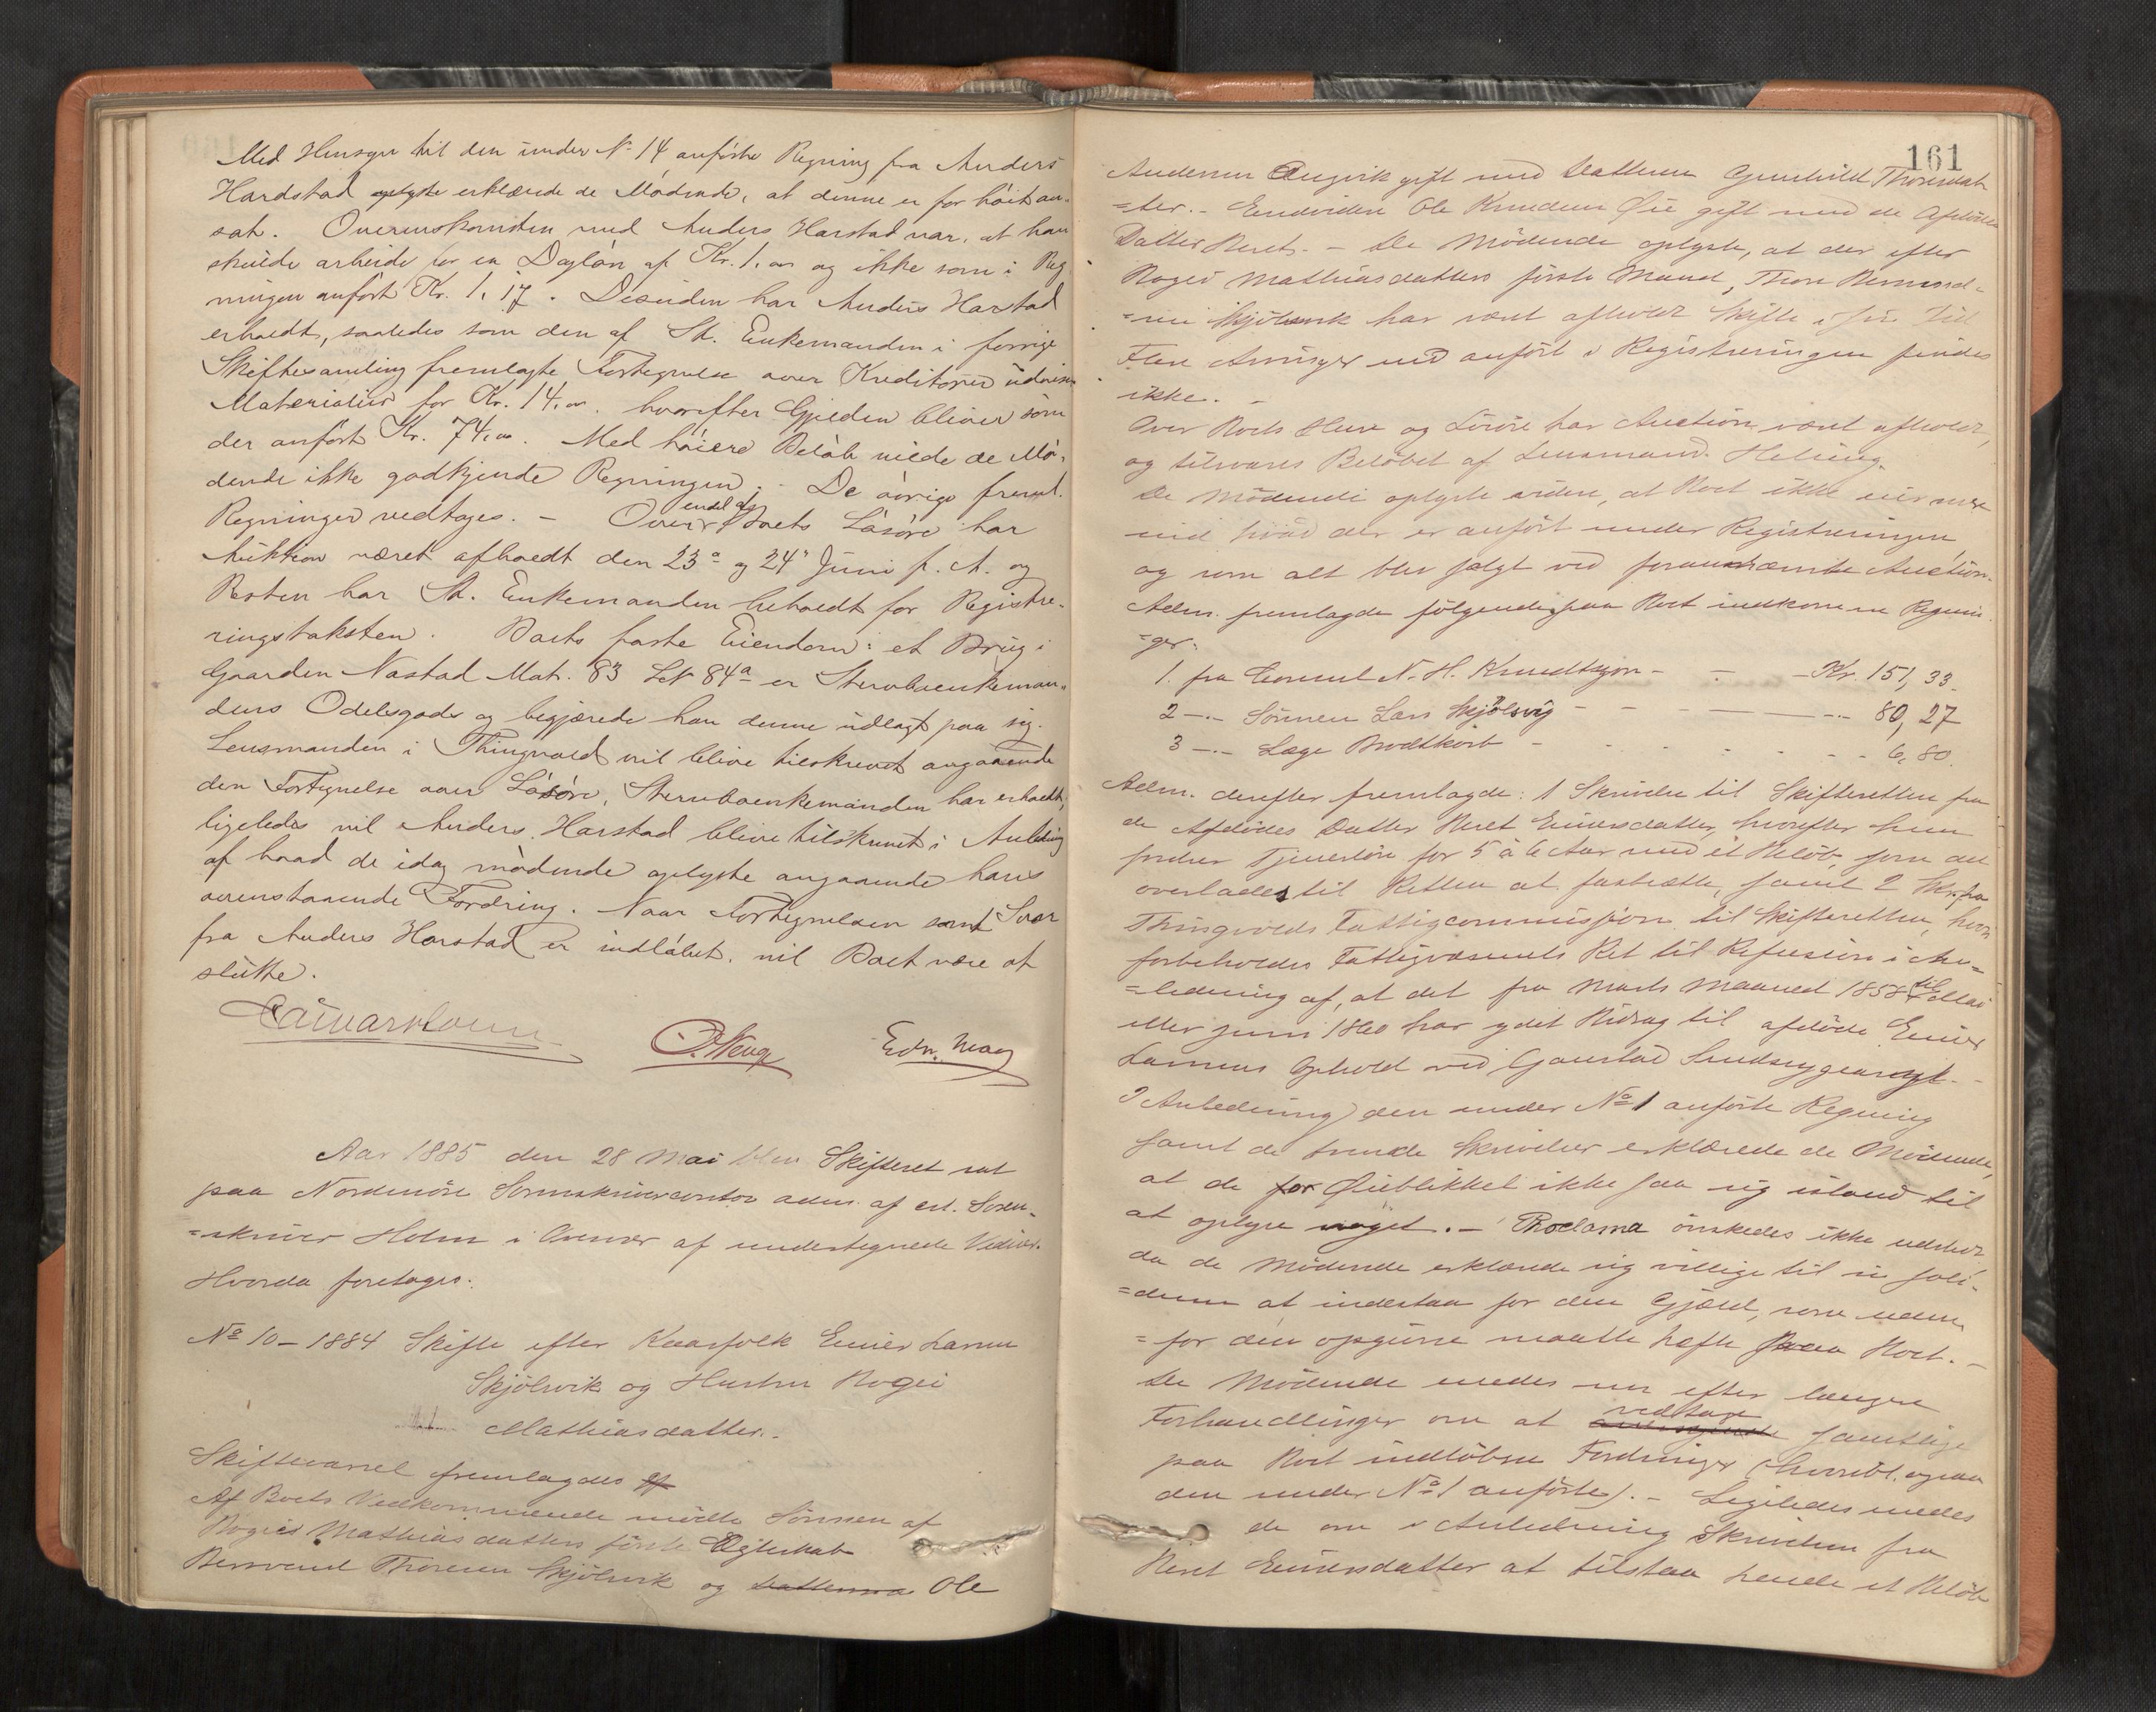 Med Hensyn til den under No 14 anførte Regning fra Anders
Hardstad oplyste erklærede de Mødende, at denne er for høit an-
sat. Overenskomsten med Anders Harstad var, at han
skulde arbeide for en Dagløn af Kr. 1,00 og ikke som i Reg
ningen anført Kr. 1,17. Desuden har Anders Harstad
erholdt, saaledes som den af St. Enkemanden i forrige
Skiftesamling fremlagte Fortegnelse over Kreditorer udviser
Materialier for Kr. 14,00. hvorefter Gjælden bliver som
der anført Kr. 74,00. Med høiere Beløb vilde de Mø-
dende ikke godkjende Regningen. - De øvrige freml.
Regninger vedtages. - Over endel af Boets Løsøre har
Auktion været afholdt den 23de og 24de Juni f. A. og
Resten har St. Enkemanden beholdt for Registre-
ringstaksten. Boets faste Eiendom: et Brug i
Gaarden Nastad Mat. 83 L.No 84a er Stervboenkeman-
dens Odelsgods og begjærede han denne udlagt paa sig.
Lensmanden i Thingvold vil blive tilskrevet angaaende
den Fortegnelse over Løsøre, Stervboenkemanden har erholdt,
ligeledes vil Anders Harstad blive tilskrevet i Anledning
af hvad de idag mødende oplyste angaaende hans
ovenstaaende Fordring. Naar Fortegnelsen samt Svar
fra Anders Harstad er indløbet, vil Boet være at
slutte.
Edv. May
Aar 1885 den 28 Mai blev Skifteret sat
paa Nordmøre Sorenskrivercontor adm. af cst. Soren-
=skriver Holm i Overvær af undertegnede Vidner.
Hvorda foretoges:
No 10 - 1884 Skifte efter Kaarfolk Einer Larsen
Skjølsvik og Hustru Roger
Mathiasdatter.
Skiftevarsel fremlagdes
Af Boets Vedkommende mødte Sønnen af
Rogers Mathiasdatters første Ægteskab
Bersvend Thoresen Skjølsvik og Ole
161
Andersen Angvik gift med Datteren Gunhild Thoresdat
=ter. - Endvidere Ole Knudsen Øie gift med de Afdødes
Datter Beret. - De Mødende oplyste, at der efter
Roger Mathiasdatters første Mand, Thore Bersvend-
=sen Skjølsvik har været afholdt Skifte i sin Tid
Flere Arvinger end anført i Registreringen findes
ikke. -
Over Boets Huse og Løsøre har Auction været afholdt,
og tilsvares Beløbet af Lensmand Helsing.
De Mødende oplyste videre, at Boet ikke eier mere
end hvad der er anført under Registreringen,
og som alt blev solgt ved forannævnte Auction.
Adm. fremlagde følgende paa Boet indkomne Regnin-
=ger:
1. fra Consul N. H. Knudtzon - - - Kr. 151,33.
2 -"- Sønnen Lars Skjølsvig - - - -"- 80,27
3 -"- Læge Brodtkorb - - - - 6,80.
Adm. derefter fremlagde: 1 Skrivelse til Skifteretten fra
de Afdødes Datter Beret Einersdatter, hvorefter hun
fordrer Tjenerløn for 5 à 6 Aar med et Beløb, som det
overlades til Retten at fastsætte, samt 2 Skr. fra
Thingvolds Fattigcommission til Skifteretten, hvori
forbeholdes Fattigvæsenets Ret til Refusion i An-
=ledning af, at det fra Marts Maaned 1858 til
eller Juni 1860 har ydet Bidrag til afdøde Einer
Larsens Ophold ved Gaustad Sindssygeasyl. -
I Anledning den under No 1 anførte Regning
samt de tvende Skrivelser erklærede de Mødende,
at de for Øieblikket ikke saa sig istand til
at oplyse noget. - Proclama ønskedes ikke udstedt
da de Mødende erklærede sig villige til in soli-
=dum at indestaa for den Gjæld, som uden-
=for den opgivne maatte hefte paa Boet. -
De Mødende enedes nu efter længere
Forhandlinger om at vedtage samtlige
paa Boet indløbne Fordringer (hvoribl. ogsaa
den under No 1 anførte). - Ligeledes enedes
de om i Anledning Skrivelsen fra
Beret Einersdatter at tilstaa hende et Beløb